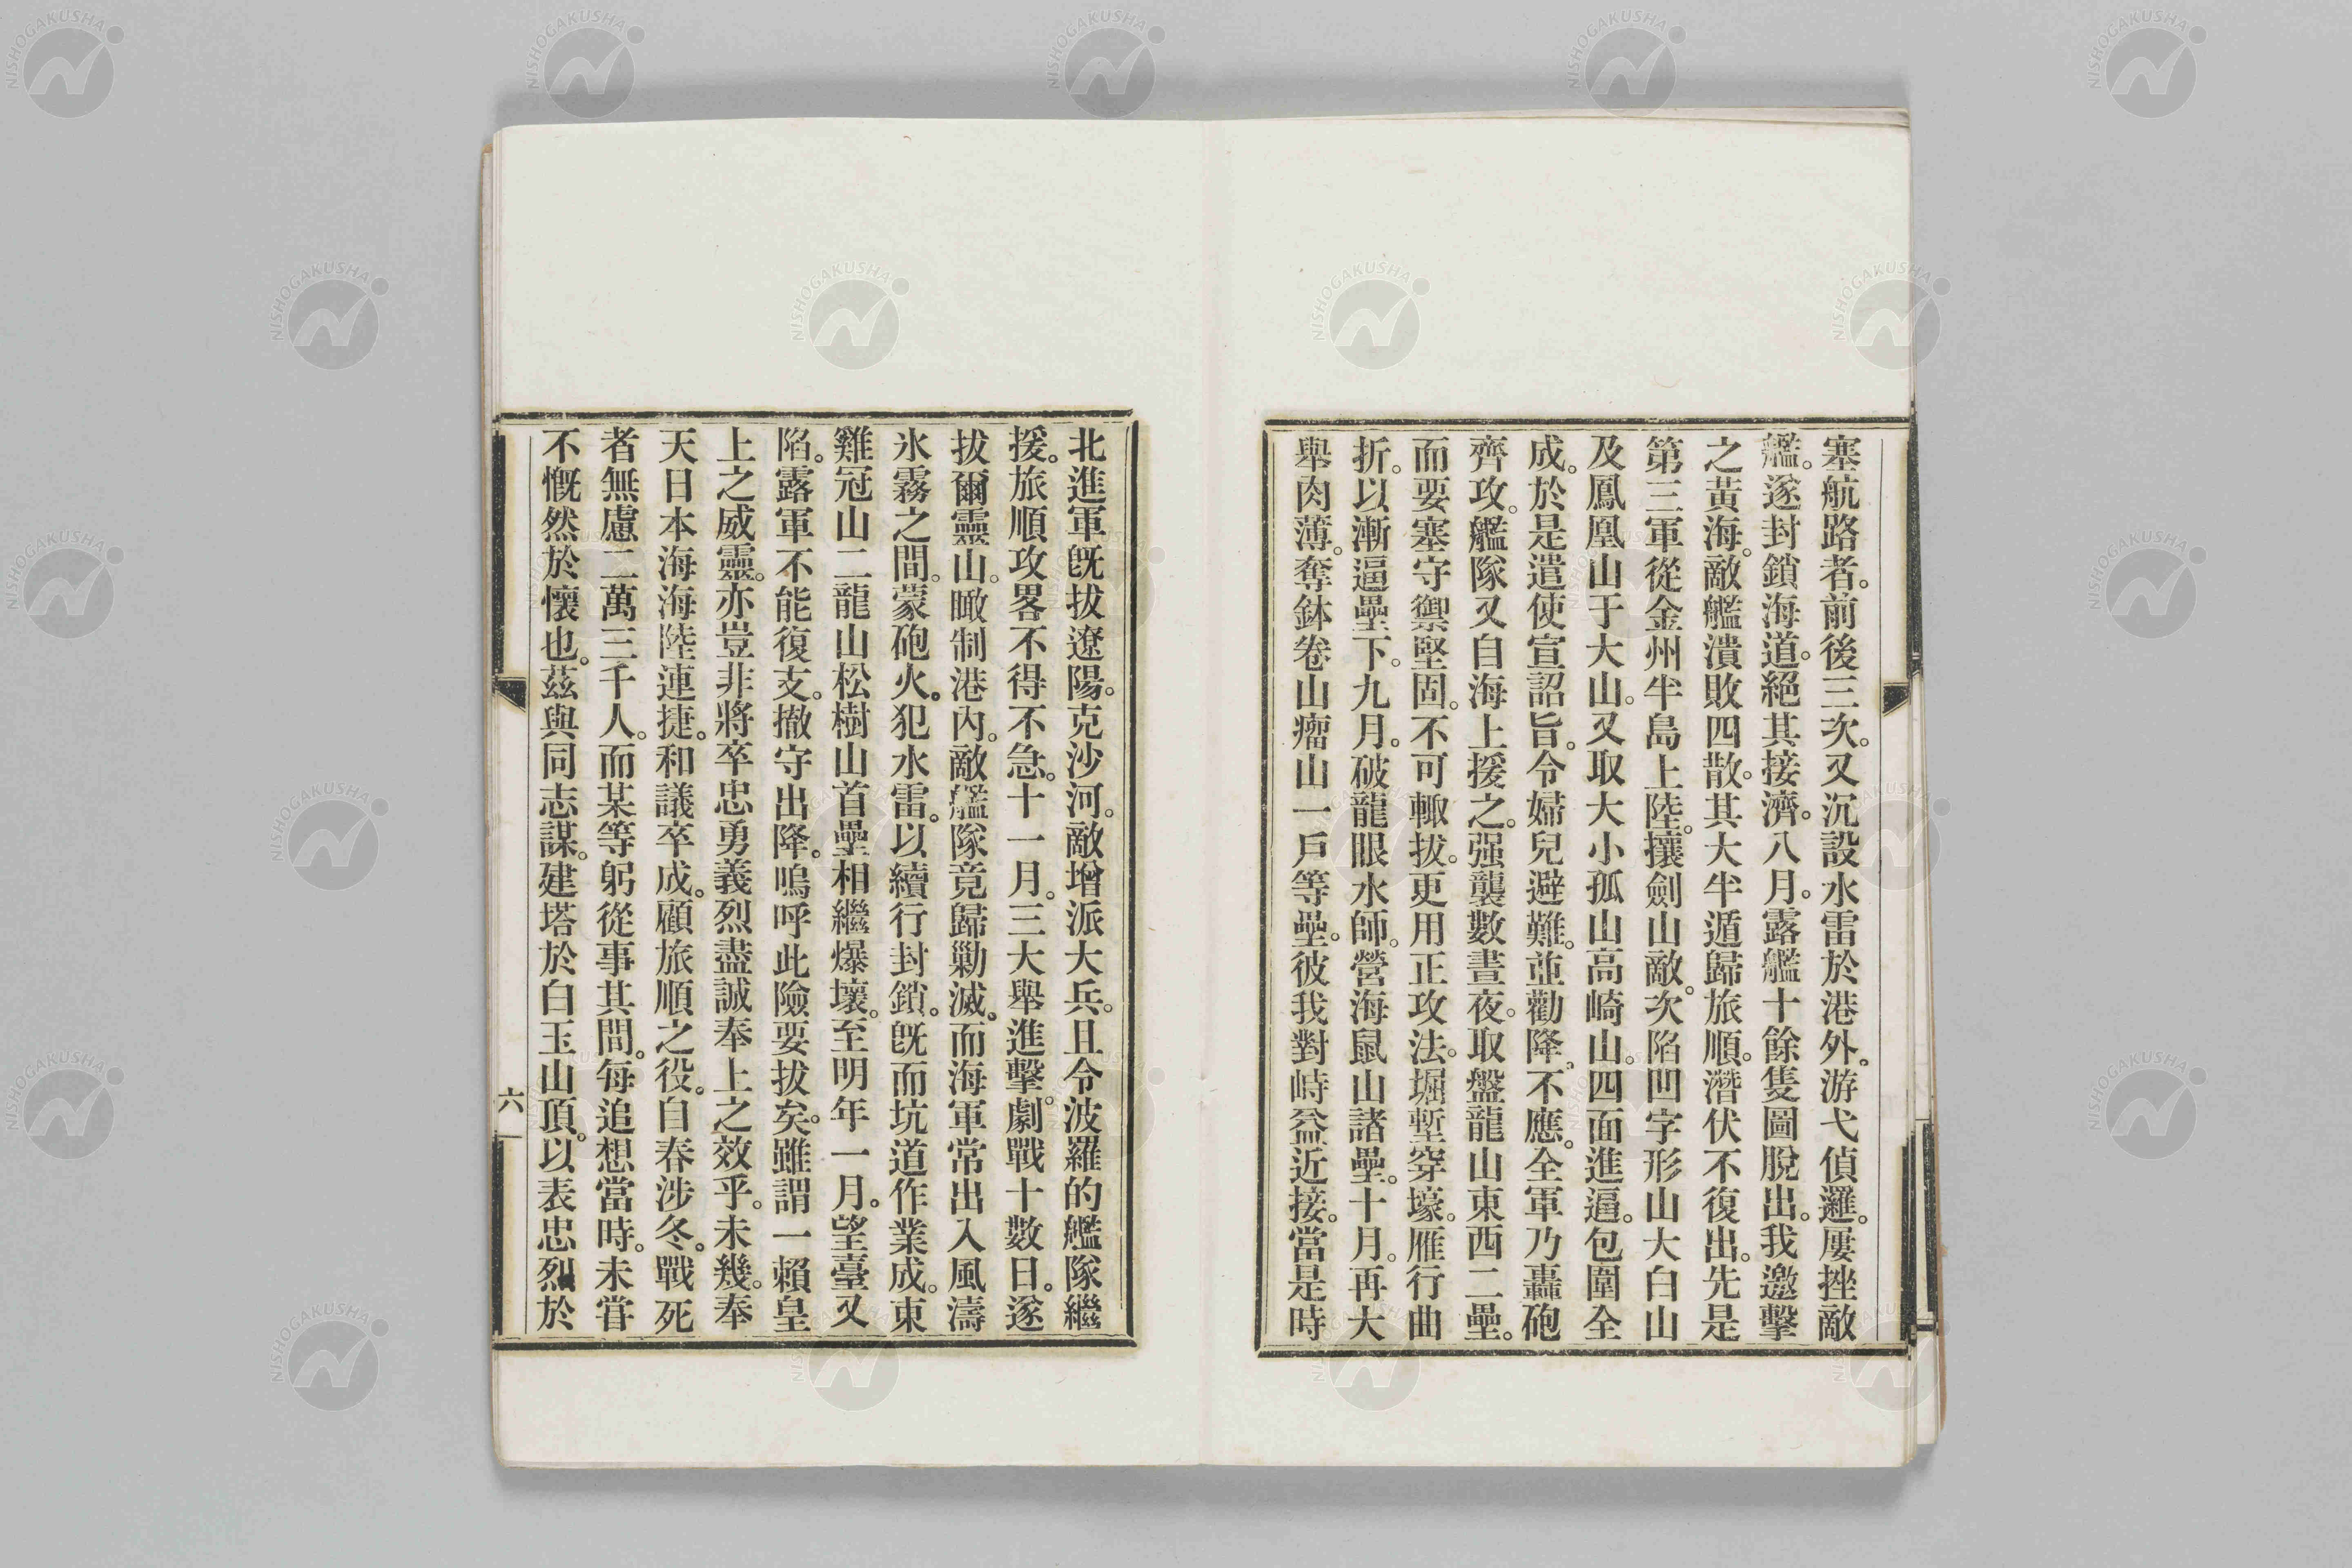 塞航路者。前後三次。又沉設水雷於港外。游弋偵邏。屢挫敵
艦。遂封鎖海道。絕其接濟。八月。露艦十餘隻圖脫出。我邀擊
之黃海。敵艦潰敗四散。其大半遁歸旅順。潛伏不復出。先是
第三軍從金州半島上陸。攘劍山敵。次陷凹字形山大白山
及鳳凰山于大山。又取大小孤山高崎山。四面進逼。包圍全
成。於是遣使宣詔旨。令婦兒避難。並勸降。不應。全軍乃轟砲
齊攻。艦隊又自海上援之。强襲數晝夜。取盤龍山東西二壘。
而要塞守禦堅固。不可輙拔。更用正攻法。堀塹穿壕。雁行曲
折。以漸逼壘下。九月。破龍眼水師。營海鼠山諸壘。十月。再大
舉肉薄。奪鉢卷山瘤山一戶等壘。彼我對峙益近接。當是時
北進軍旣拔遼陽。克沙河。敵增派大兵。且令波羅的艦隊繼
援。旅順攻畧不得不急。十一月。三大舉進擊。劇戰十數日。遂
拔爾靈山。瞰制港內。敵艦隊竟歸勦滅。而海軍常出入風濤
氷霧之間。蒙砲火。犯水雷。以續行封鎖。旣而坑道作業成。東
雞冠山二龍山松樹山首壘相繼爆壞。至明年一月。望臺又
陷。露軍不能復支。撤守出降。嗚呼此險要拔矣。雖謂一賴皇
上之威靈。亦豈非將卒忠勇義烈盡誠奉上之效乎。未幾。奉
天日本海海陸連捷。和議卒成。顧旅順之役。自春涉冬。戰死
者無慮二萬三千人。而某等躬從事其間。每追想當時。未嘗
不慨然於懷也。茲與同志謀。建塔於白玉山頂。以表忠烈於
六